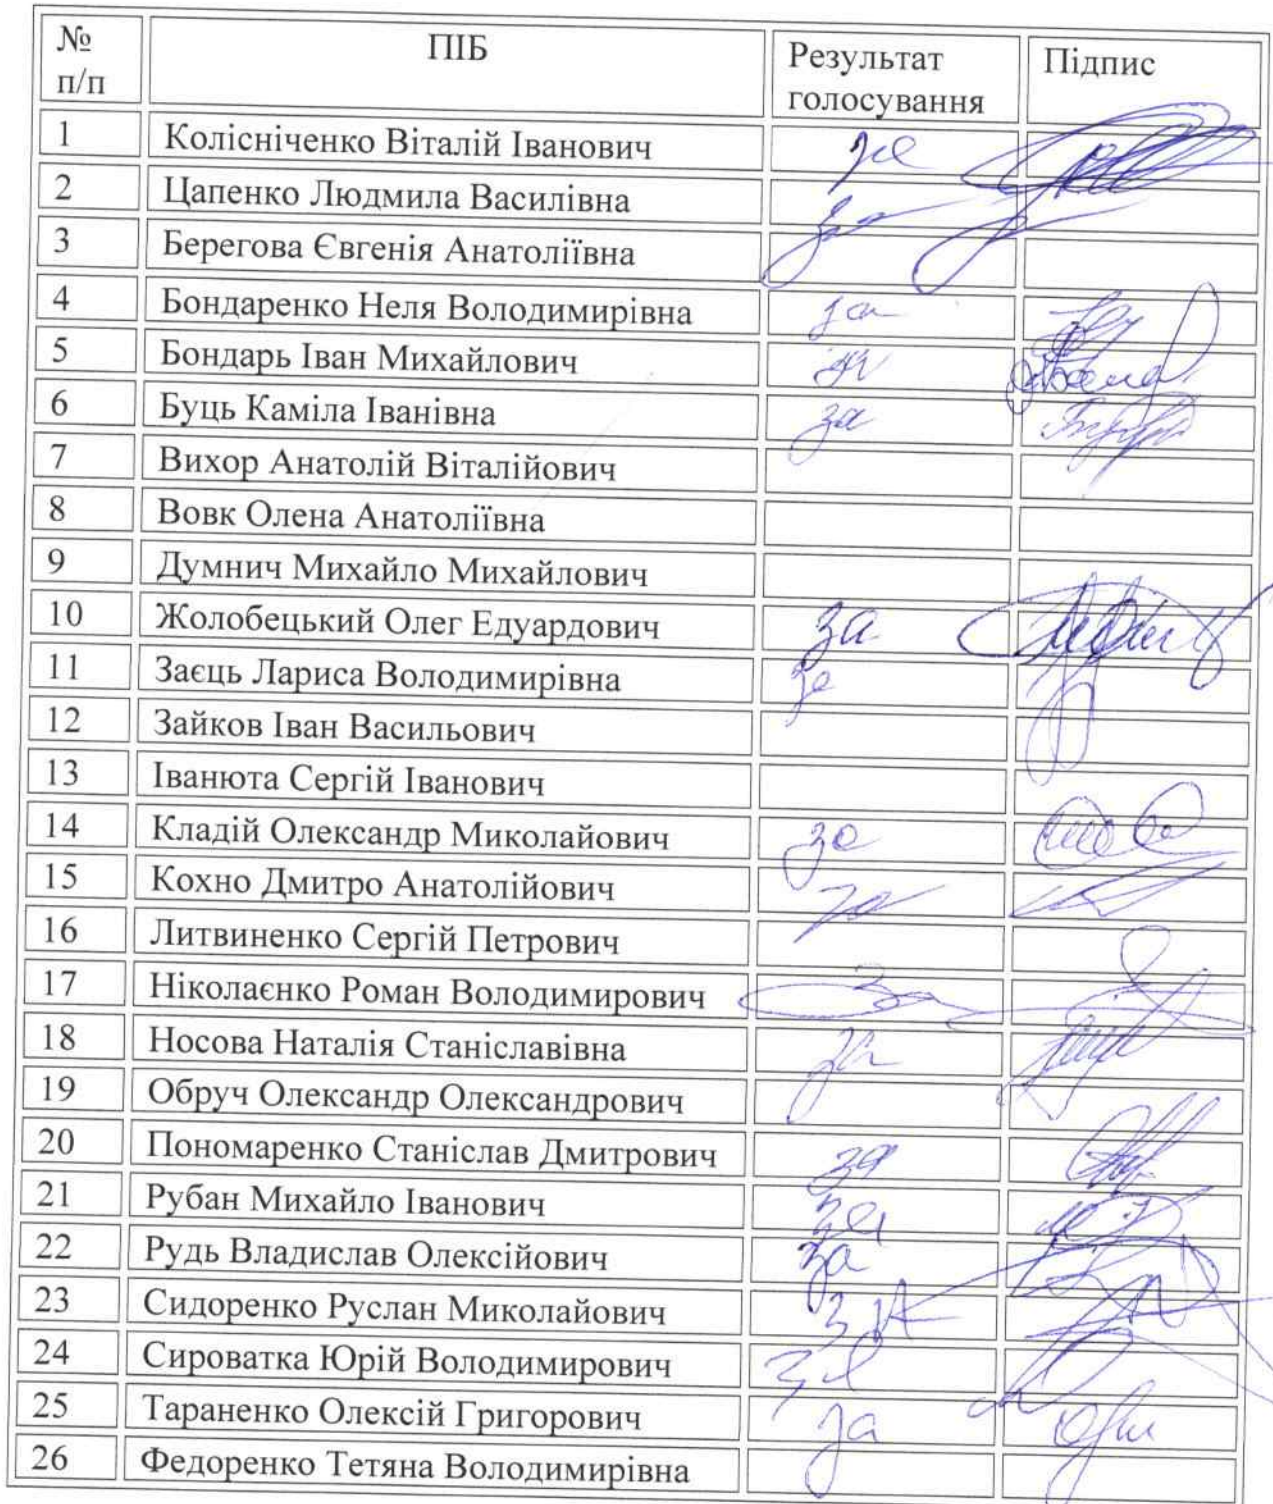 № п/п ПІБ Результат голосування Підпис
1 Колісніченко Віталій Іванович за
2 Цапенко Людмила Василівна за
3 Берегова Євгенія Анатоліївна
4 Бондаренко Неля Володимирівна за
5 Бондарь Іван Михайлович за
6 Буць Каміла Іванівна за
7 Вихор Анатолій Віталійович
8 Вовк Олена Анатоліївна
9 Думнич Михайло Михайлович
10 Жолобецький Олег Едуардович за
11 Заєць Лариса Володимирівна за
12 Зайков Іван Васильович
13 Іванюта Сергій Іванович
14 Кладій Олександр Миколайович за
15 Кохно Дмитро Анатолійович за
16 Литвиненко Сергій Петрович
17 Ніколаєнко Роман Володимирович за
18 Носова Наталія Станіславівна за
19 Обруч Олександр Олександрович
20 Пономаренко Станіслав Дмитрович за
21 Рубан Михайло Іванович за
22 Рудь Владислав Олексійович за
23 Сидоренко Руслан Миколайович за
24 Сироватка Юрій Володимирович за
25 Тараненко Олексій Григорович за
26 Федоренко Тетяна Володимирівна